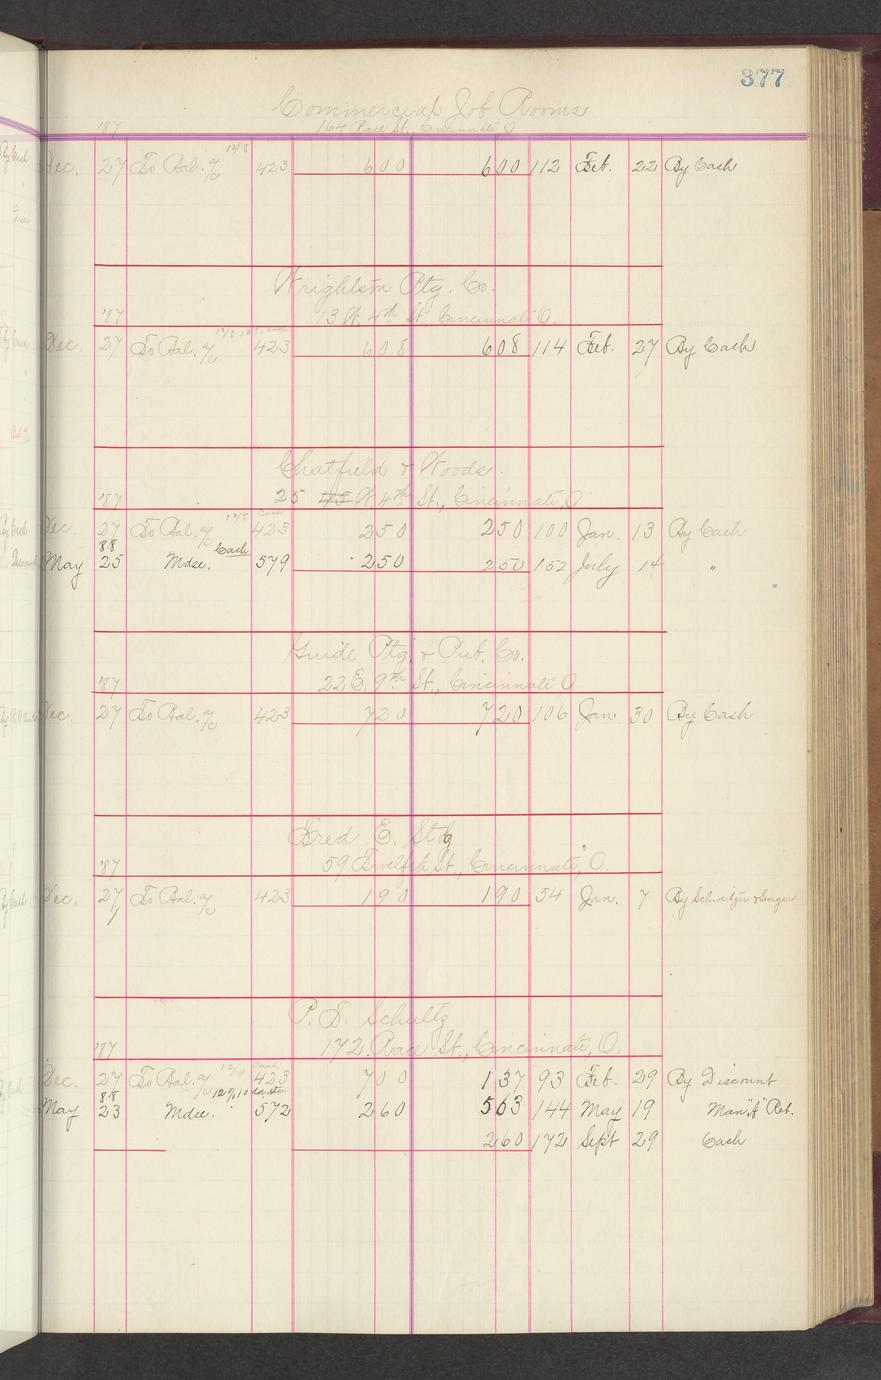 377
Commercial Job Rooms
'87 164 Race St., Cincinnati O
12/8
Dec. 27 To Bal. a/c 423 600 600 112 Feb. 22 By Cash
Wrightson Ptg. Co.
'87 13 W. 4th St., Cincinnati O.
12/8
Dec. 27 To Bal. a/c 423 608 608 114 Feb. 27 By Cash
Chatfield & Woods.
'87 25 45 W. 4th St., Cincinnati, O
12/8 Cash
Dec. 27 To Bal. a/c 423 250 250 100 Jan. 13 By Cash
'88 Cash
May 25 Mdse. 579 250 250 152 July 14 "
Guide Ptg. & Pub. Co.
'87 22 E. 9th St., Cincinnati O
Dec. 27 To Bal. a/c 423 720 720 106 Jan. 30 By Cash
Fred E.
'87 59 Twelfth St., Cincinnati, O.
Dec. 27 To Bal. a/c 423 190 190 54 Jan. 7 By Schweitzer & Singer
P. T. Schultz
'87 172 Race St., Cincinnati, O.
Cash
Dec. 27 To Bal. a/c 423 700 137 93 Feb. 29 By Discount
88
May 23 Mdse. 572 260 563 144 May 19 Man'f' Ret.
260 172 Sept 29 Cash